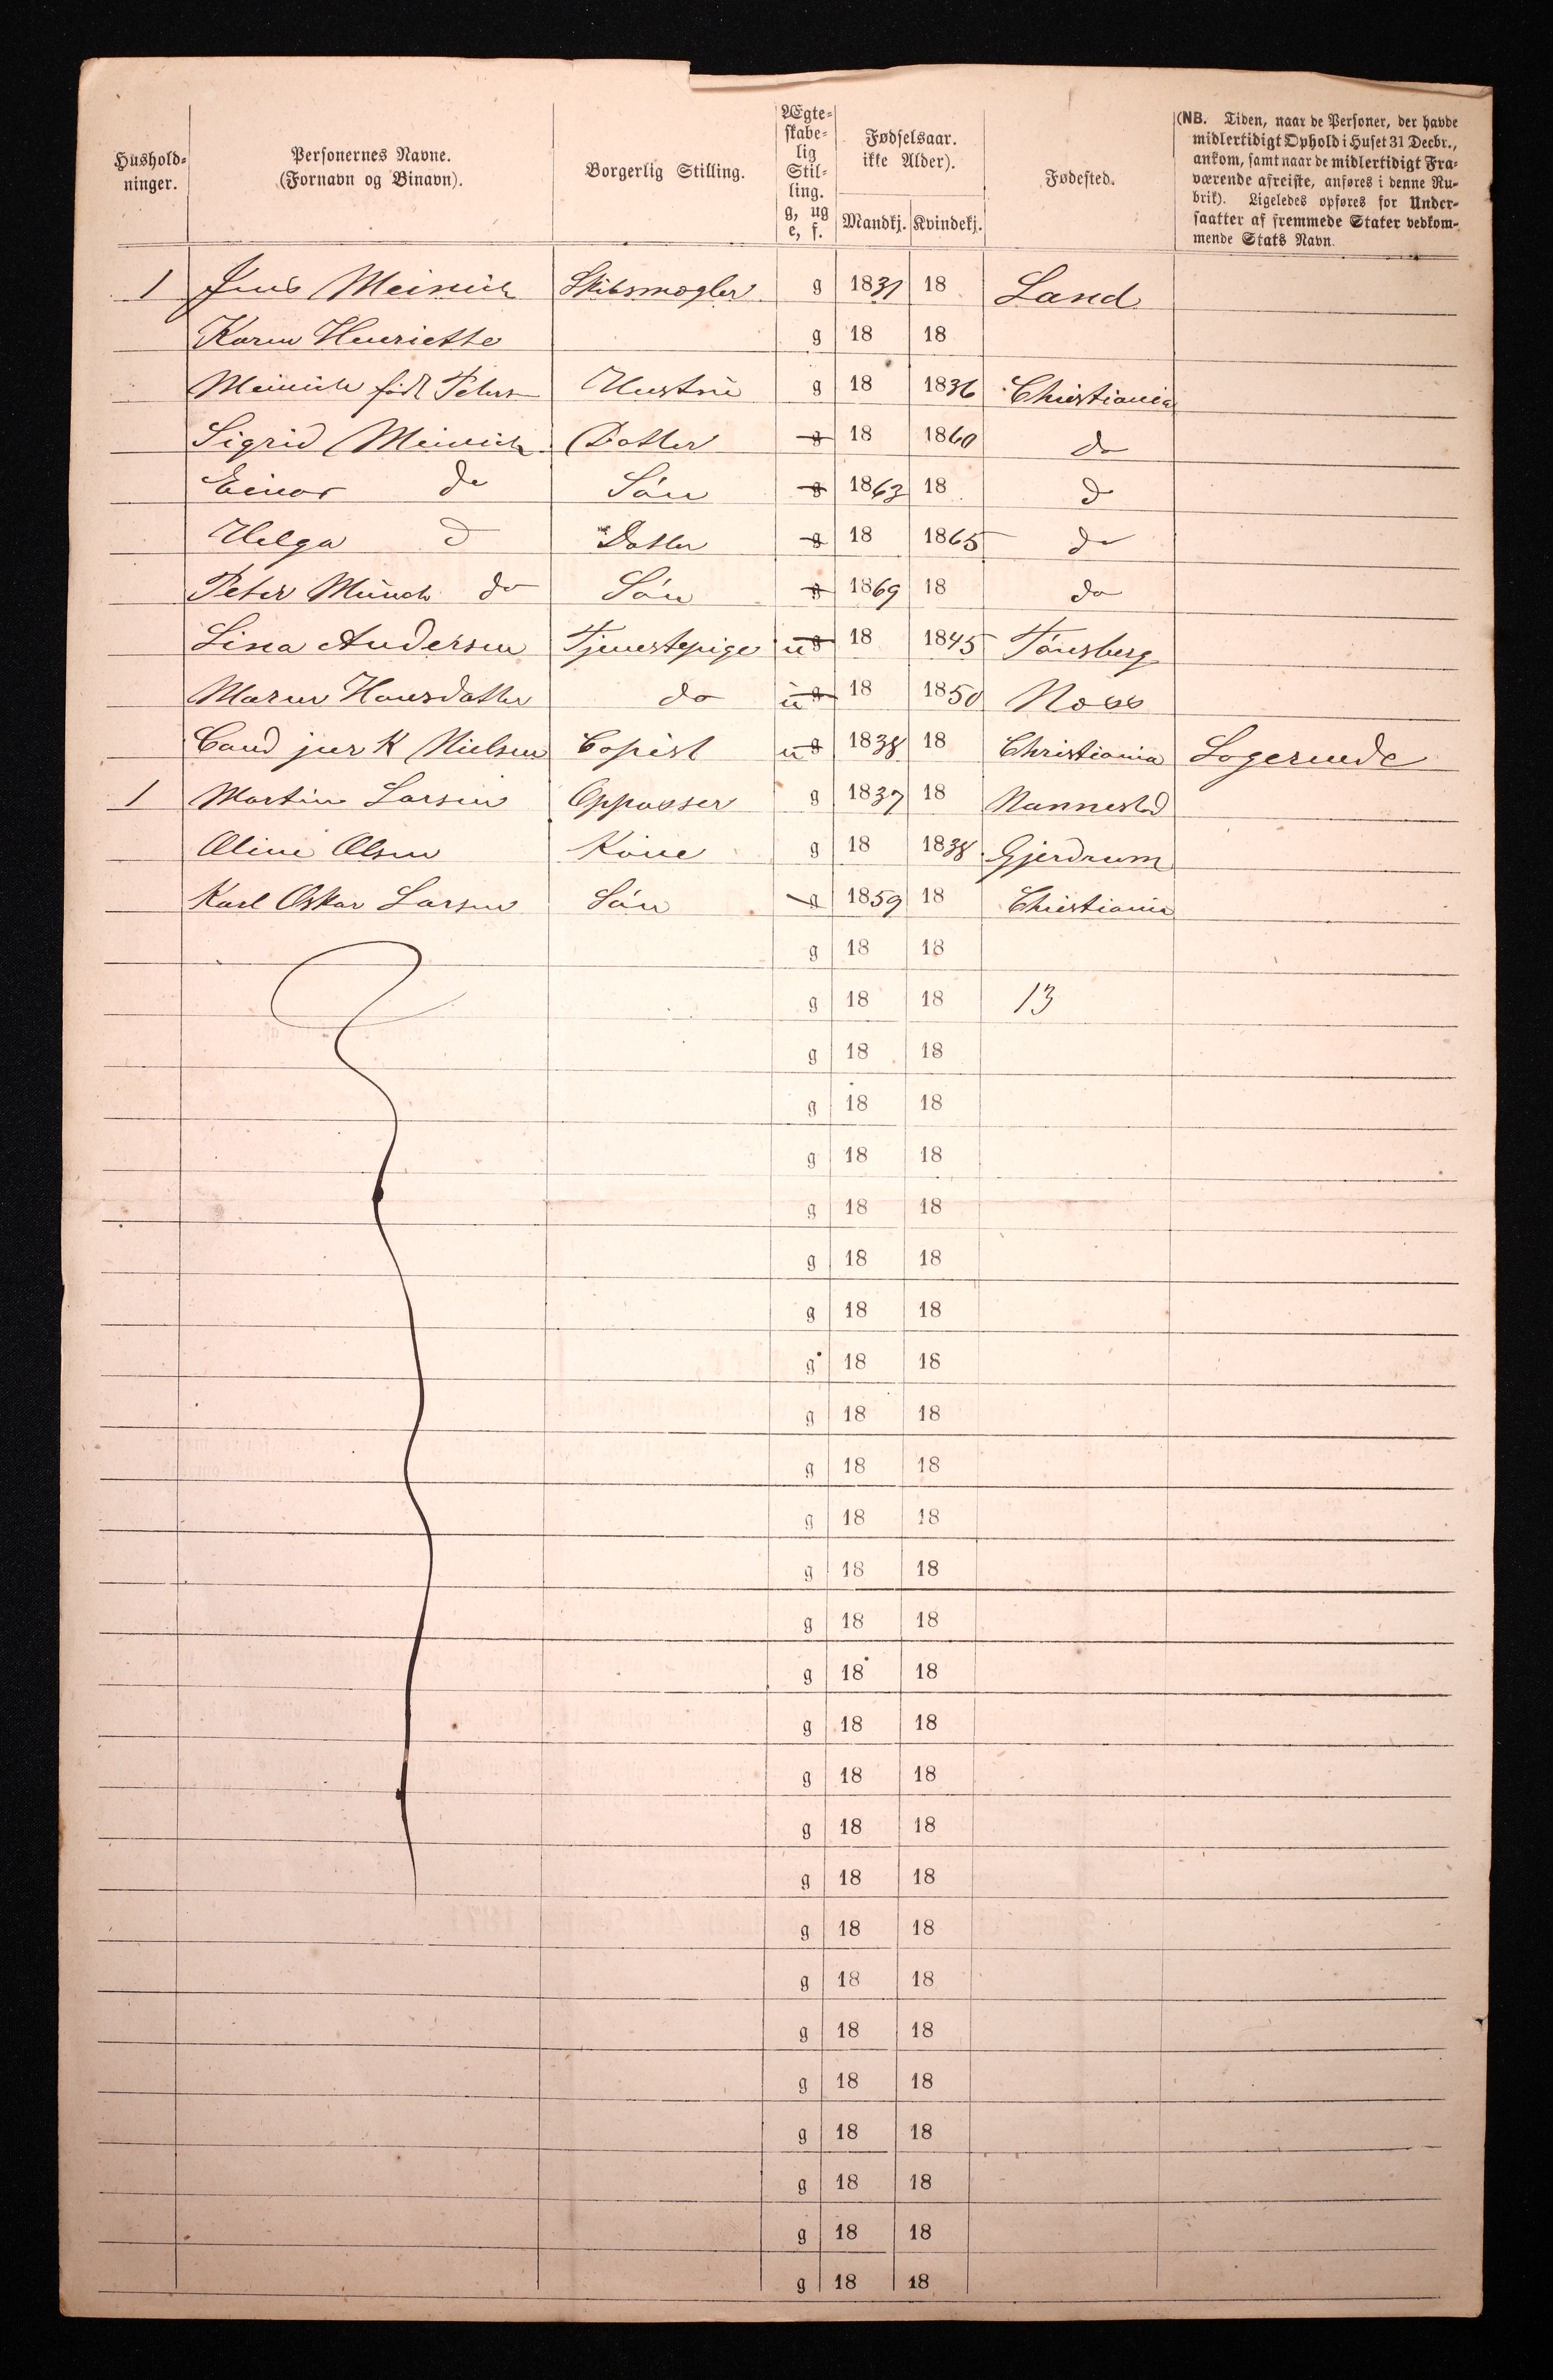 Hushold-
ninger.
Personernes Navne.
(Fornavn og Binavn).
Borgerlig Stilling.
Ægte-
skabe-
lig
Stil-
ling.
g, ug
e, f.
Fødselsaar.
ikke Alder).
Mandkj. Kvindekj.
Fødested.
(NB. Tiden, naar de Personer, der havde
midlertidigt Ophold i Huset 31 Decbr.,
ankom, samt naar de midlertidigt Fra-
værende afreiste, anføres i denne Ru-
brik). Ligeledes opføres for Under-
saatter af fremmede Stater vedkom-
mende Stats Navn.
1 Jens Meinich Skibsmægler g 1831 18 Land
Karen Henriette g 18 18
Meinich født Petersen Hustru g 18 1836 Christiania
Sigrid Meinich Datter g 18 1860 do
Einar do Søn g 1863 18 d
Helga d Datter g 18 1865 do
Peter Münch do Søn g 1869 18 do
Lina Andersen Tjenestepige ug 18 1845 Tønsberg
Maren Hansdatter do ug 18 1850 Moss
Cand jur K Nielsen Copist ug 1838 18 Christiania Logerende
1 Martin Larsen Oppasser g 1837 18 Nannestad
Oline Olsen Kone g 18 1838 Gjerdrum
Karl Oskar Larsen Søn g 1859 18 Christiania
g 18 18
g 18 18 13
g 18 18
g 18 18
g 18 18
g 18 18
g 18 18
g 18 18
g 18 18
g 18 18
g 18 18
g 18 18
g 18 18
g 18 18
g 18 18
g 18 18
g 18 18
g 18 18
g 18 18
g 18 18
g 18 18
g 18 18
g 18 18
g 18 18
g 18 18
g 18 18
g 18 18